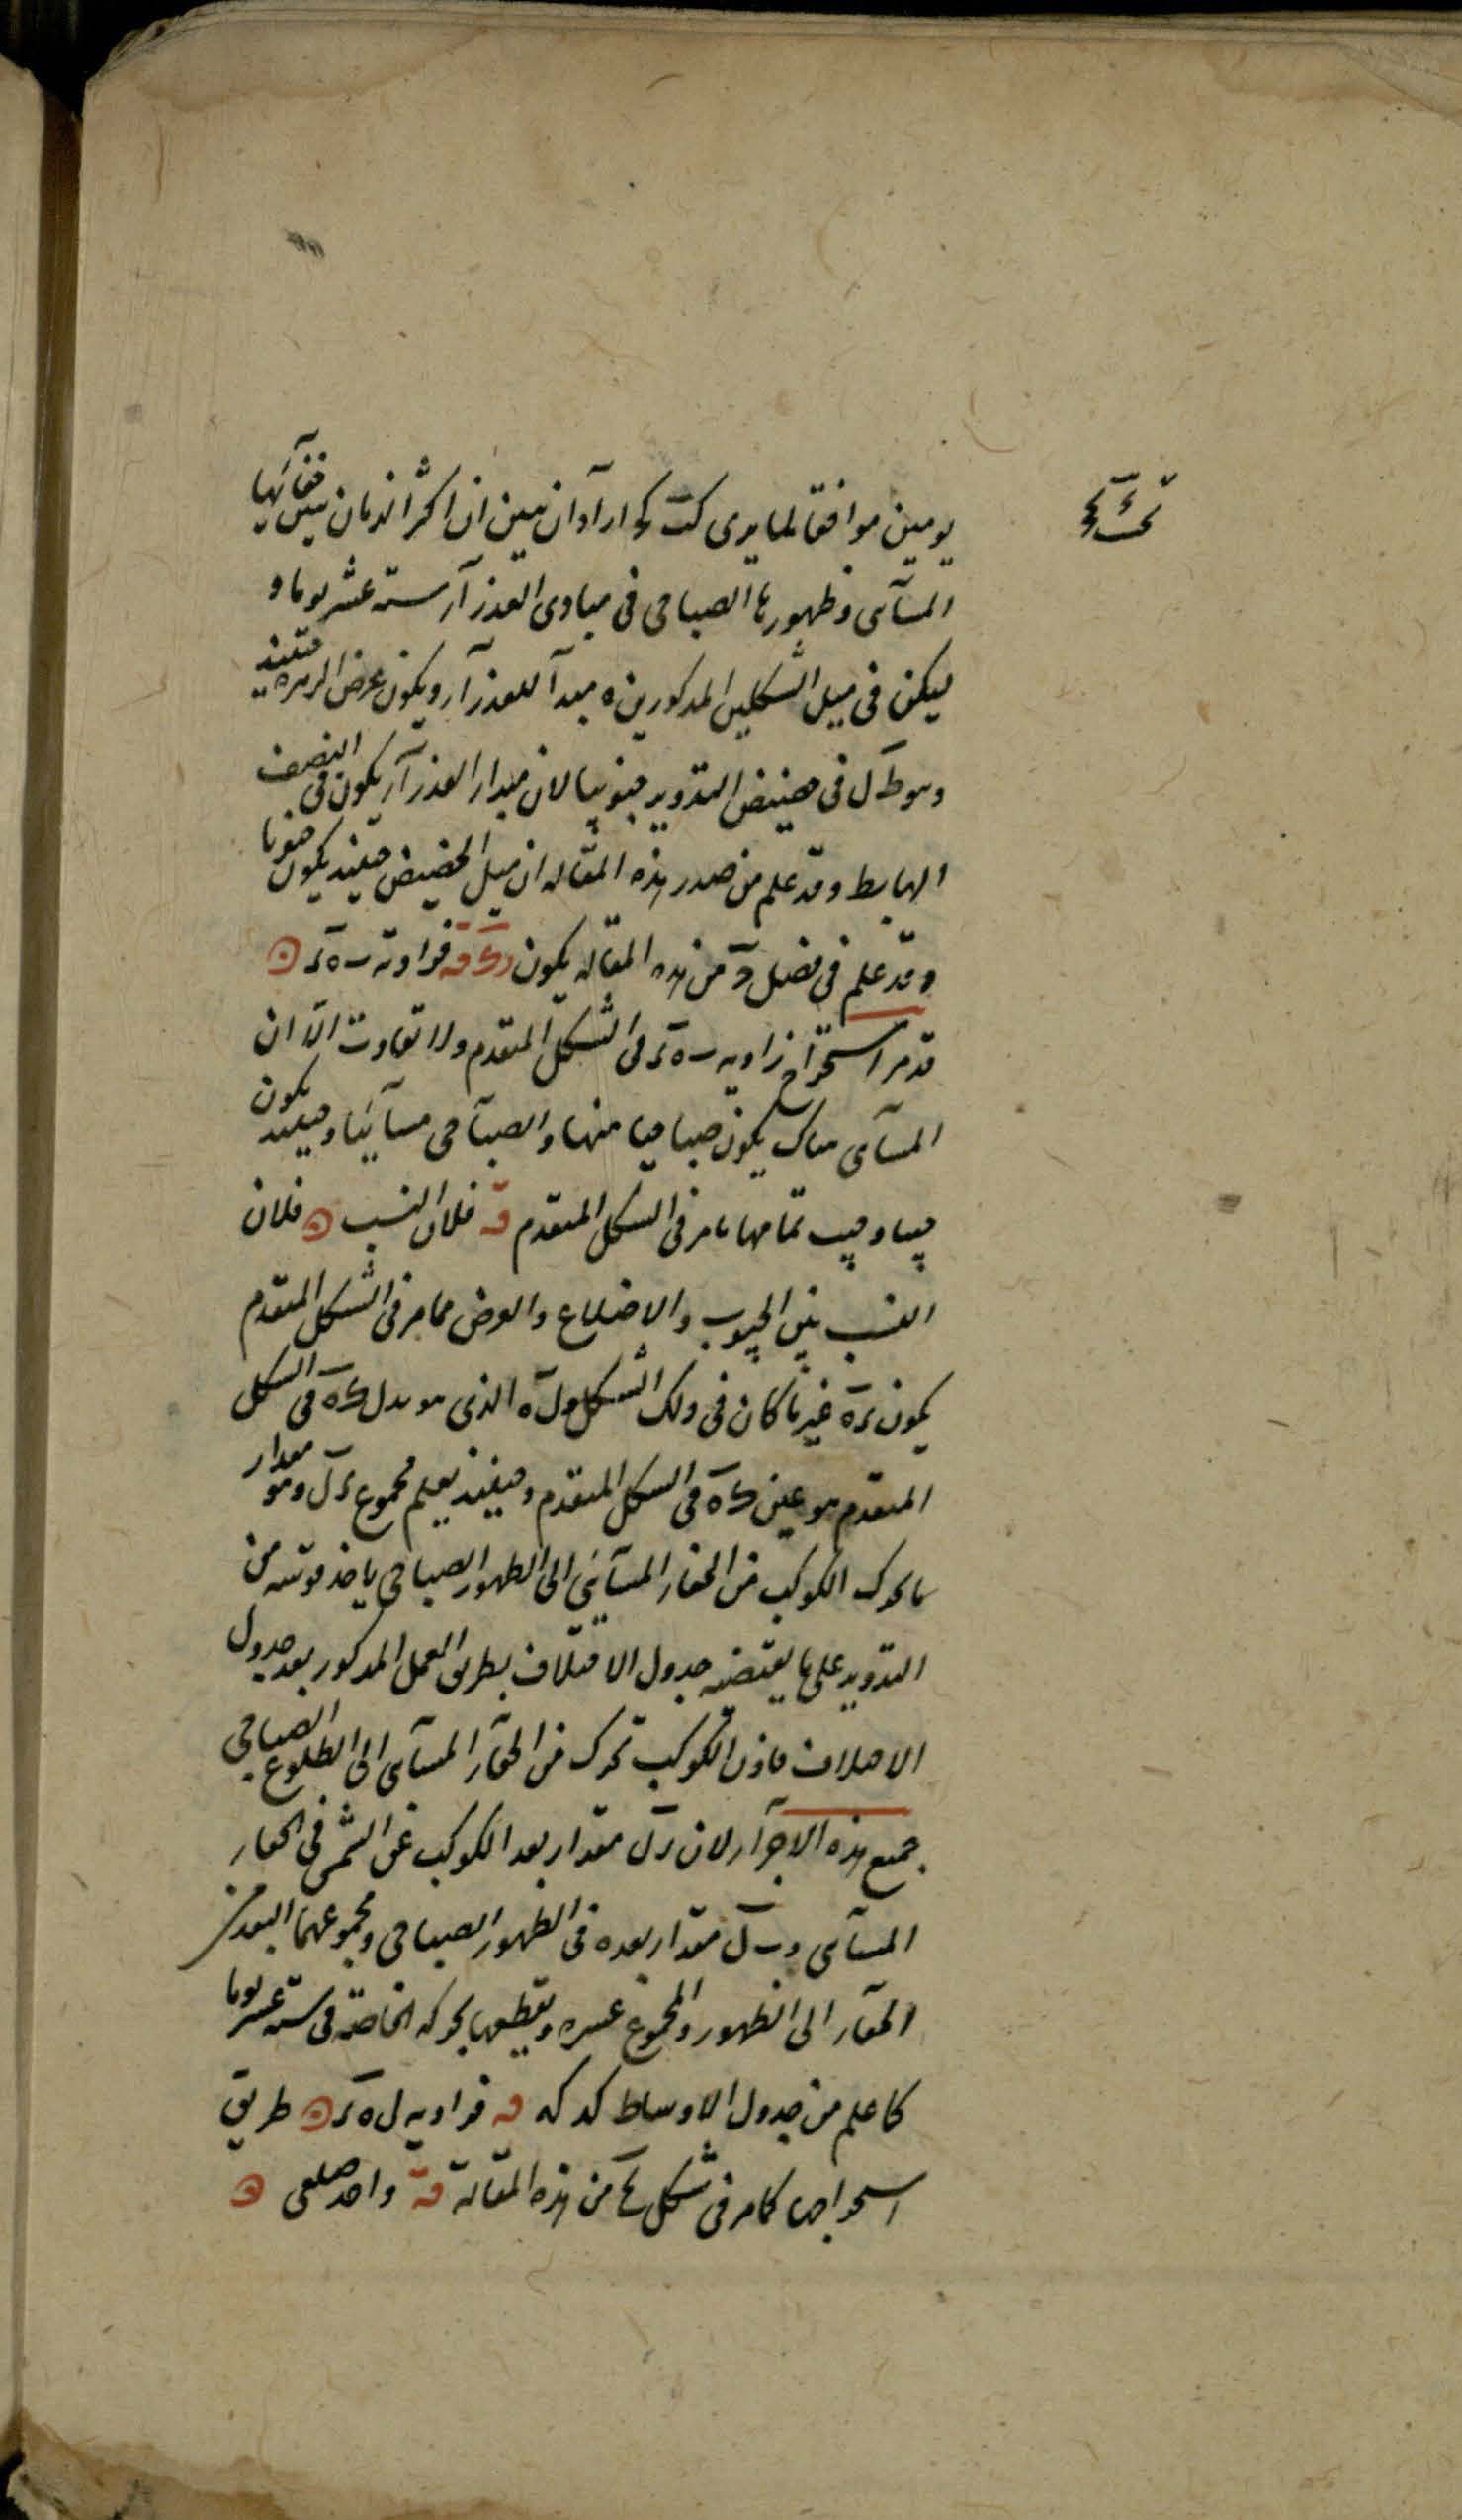 يومين موافقا لما يرى كت كح اراد ان يبين ان اكثر الزمان بين خفائها
المسآى وظهورها الصباحى فى مبادى العذرآ ستة عشر يوما و
ليكن فى ميل الشكلين المذكورين ه مبدآ للعذرآ ويكون عرض الزهره حينئذ
وهو ط ل فى حضيض التدوير جنوبيا لان مبدا العذرآ يكون فى النصف
الهابط وقد علم من صدر هذه المقاله ان ميل الحضيض حينئذ يكون جنوبا
وقد علم فى فصل و من هذه المقاله يكون فزاوية ب ه ر
قد مر استخراج زاويه ب ه ر فى الشكل المتقدم ولا تفاوت الا ان
المسآى هناك يكون صباحيا هنا والصباحى مسائيا وحينئذ يكون
جيبا وجيب تمامها مامر فى الشكل المتقدم فلان النسب فلان
النسب بين الجيوب والاضلاع والعرض مما مر فى الشكل المتقدم
يكون ر ه غير ما كان فى ذلك الشكل و ل ه الذى هو بدل ك ه فى الشكل
المتقدم هو عين ك ه فى الشكل المتقدم وحينئذ يعلم مجموع ر ل وهو مقدار
ما تحرك الكوكب من الخفا المسآئى الى الظهور الصباحى ياخذ قوسه من
التدوير على ما يقتضيه جدول الاختلاف بطريق العمل المذكور بعد جدول
الاختلاف فاذن الكوكب تحرك من الخفآ المسآى الى الطلوع الصباحى
جميع هذه الاجزآ لان ر ل مقدار بعد الكوكب عن الشمس فى الخفا
المسآى و ب ل مقدار بعده فى الظهور الصباحى ومجموعهما البعد من
الخفآ الى الظهور والمجموع عشره ويقطعها بحركه الخاصة فى ستة عشر يوما
كما علم من جدول الاوساط كد كه فزاويه ل ه ر طريق
استخراجها كما مر فى شكل من هذه المقالة واحد ضلعى